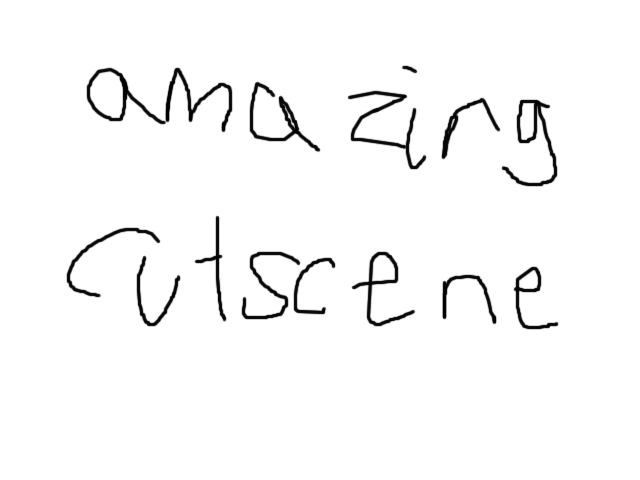 amazing
cutscene